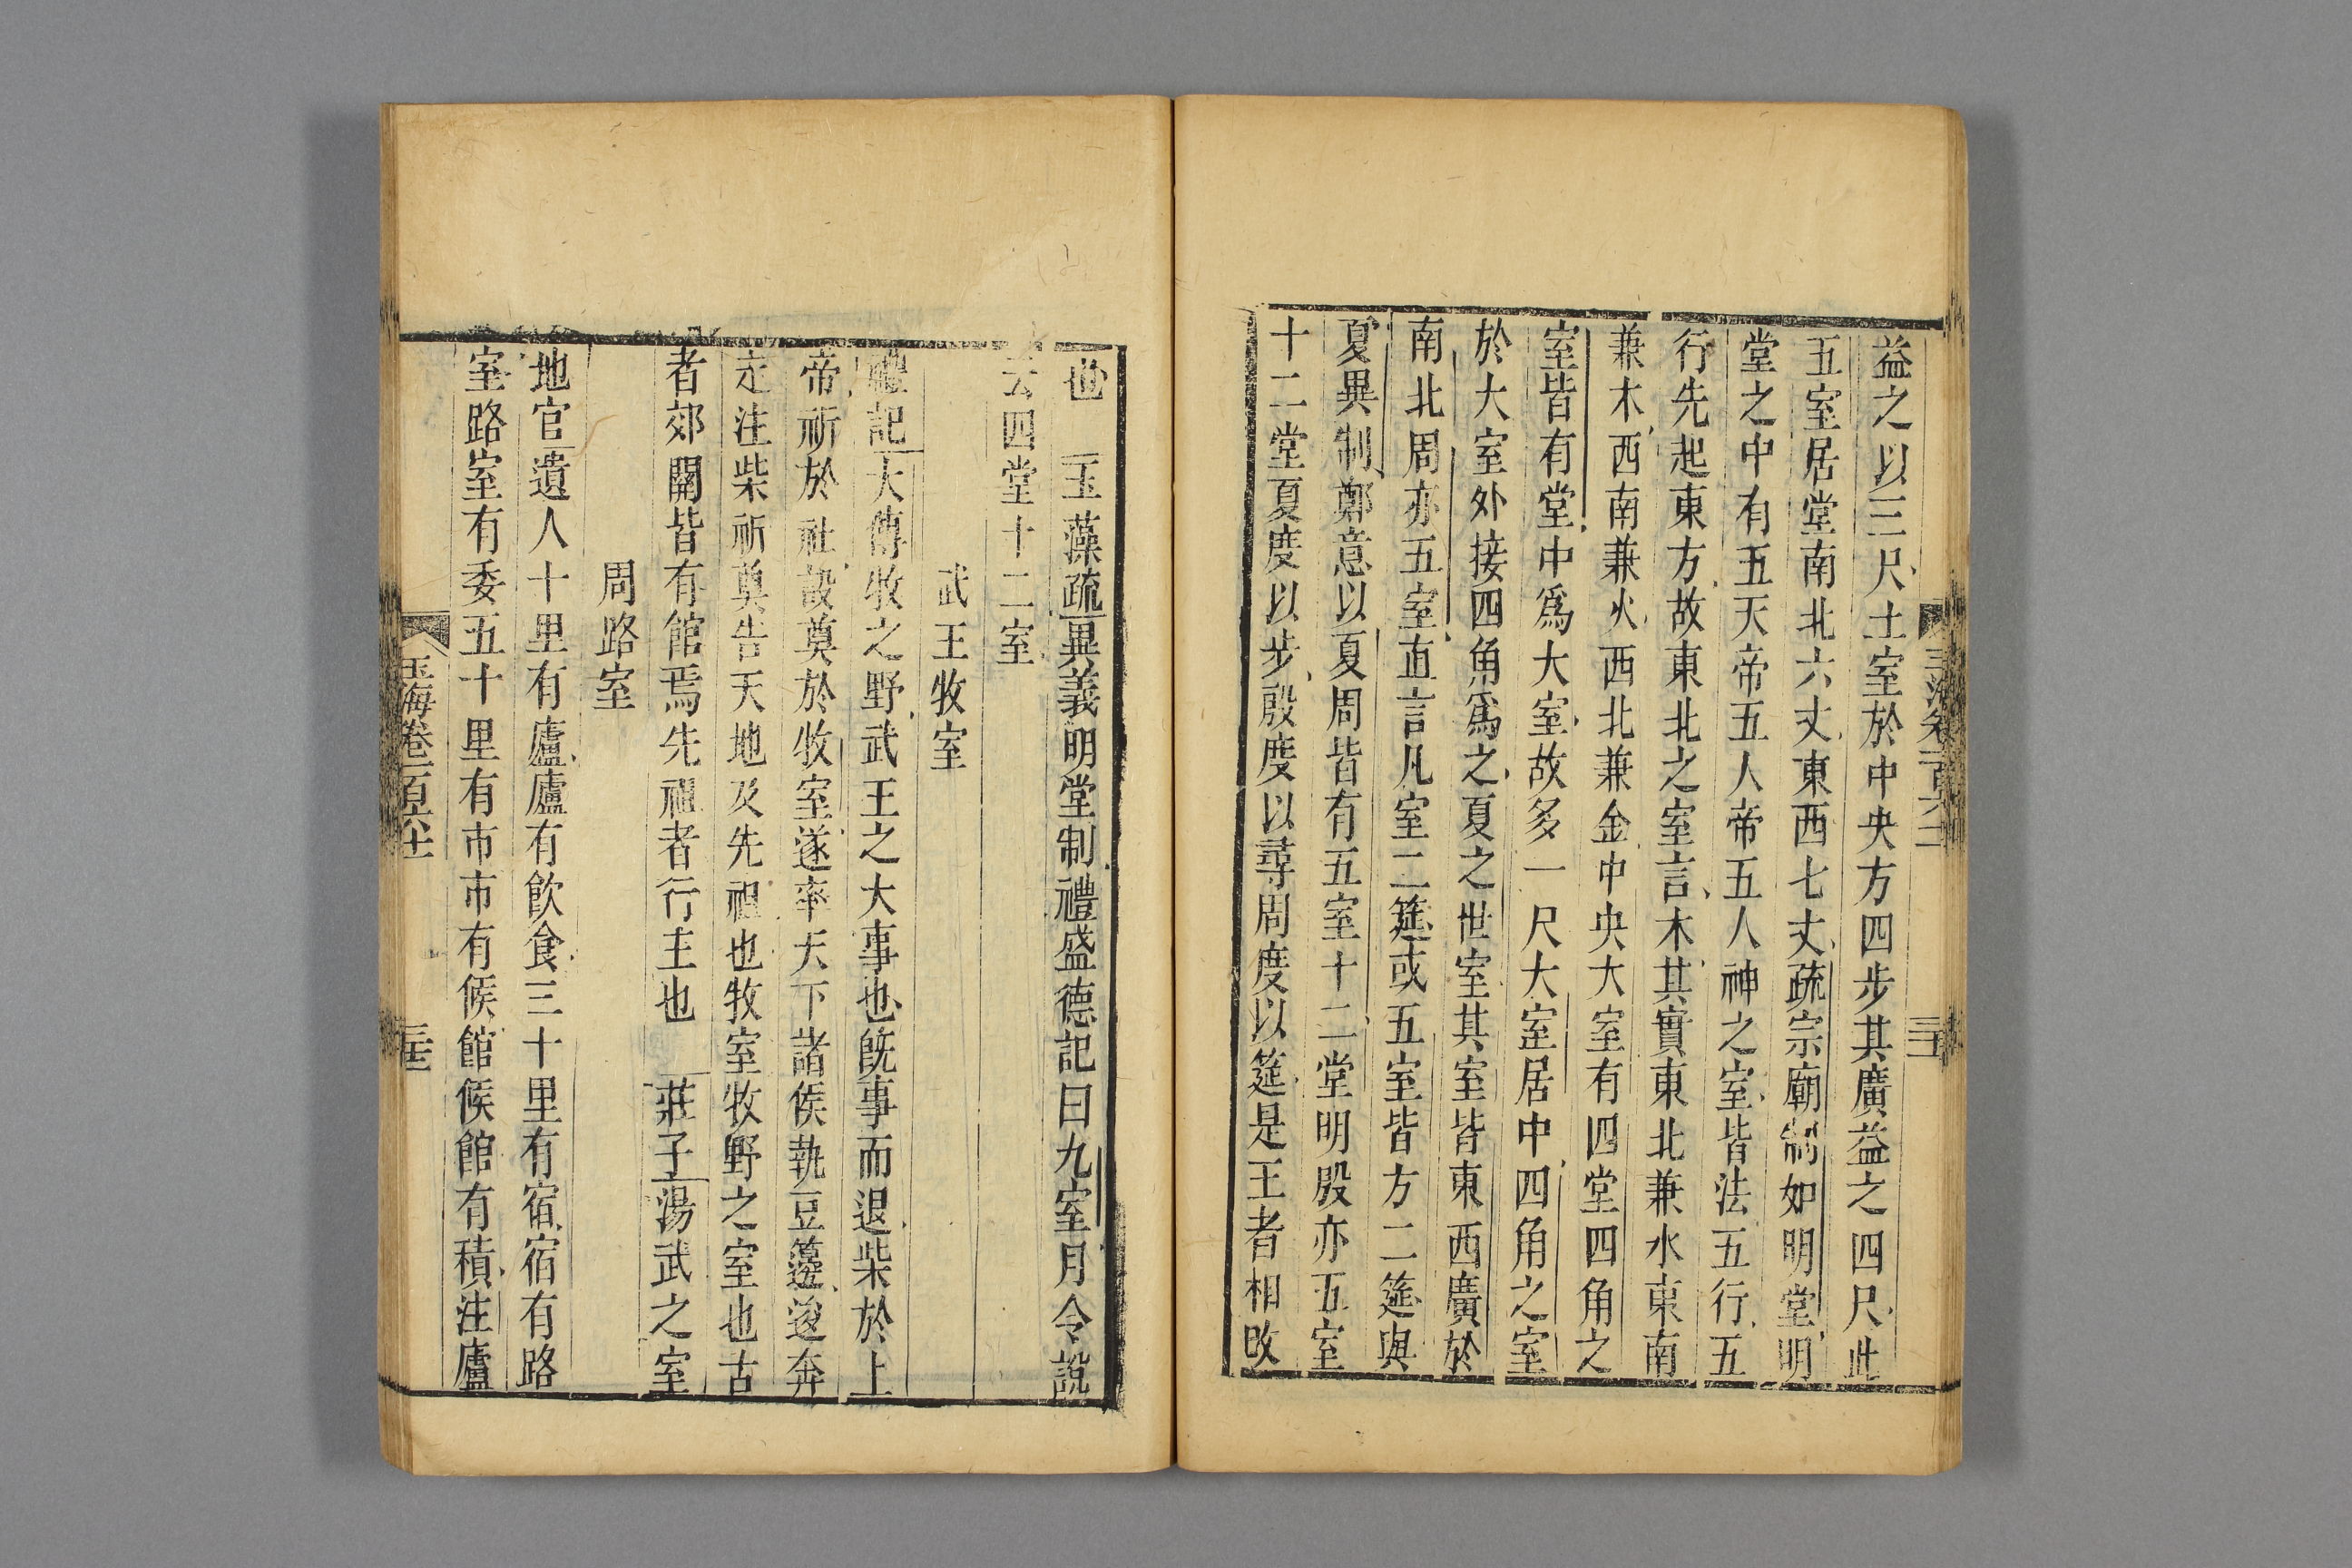 益之以三尺土室於中央方四步其廣益之四尺此
五室居堂南北六丈東西七丈疏宗廟制如明堂明
堂之中有五天帝五人帝五人神之室皆法五行五
行先起東方故東北之室言木其實東北兼水東南
兼木西南兼火西北兼金中央大室有四堂四角之
室皆有堂中爲大室故多一尺大室居中四角之室
於大室外接四角爲之夏之世室其室皆東西廣於
南北周亦五室直言凡室二筵或五室皆方二筵與
夏異制鄭意以夏周皆有五室十二堂明殷亦五室
十二堂夏度以步殷度以尋周度以筵是王者相改
也 玉藻疏異義明堂制禮盛德記曰九室月令說
云四堂十二室
武王牧室
禮記大傳牧之野武王之大事也旣事而退柴於上
帝祈於社設奠於牧室遂率天下諸侯執豆籩逡奔
走注柴祈奠告天地及先祖也牧室牧野之室也古
者郊關皆有館焉先祖者行主也 莊子湯武之室
周路室
地官遺人十里有廬廬有飮食三十里有宿宿有路
室路室有委五十里有市市有候館候館有積注廬
玉海卷一百六十一